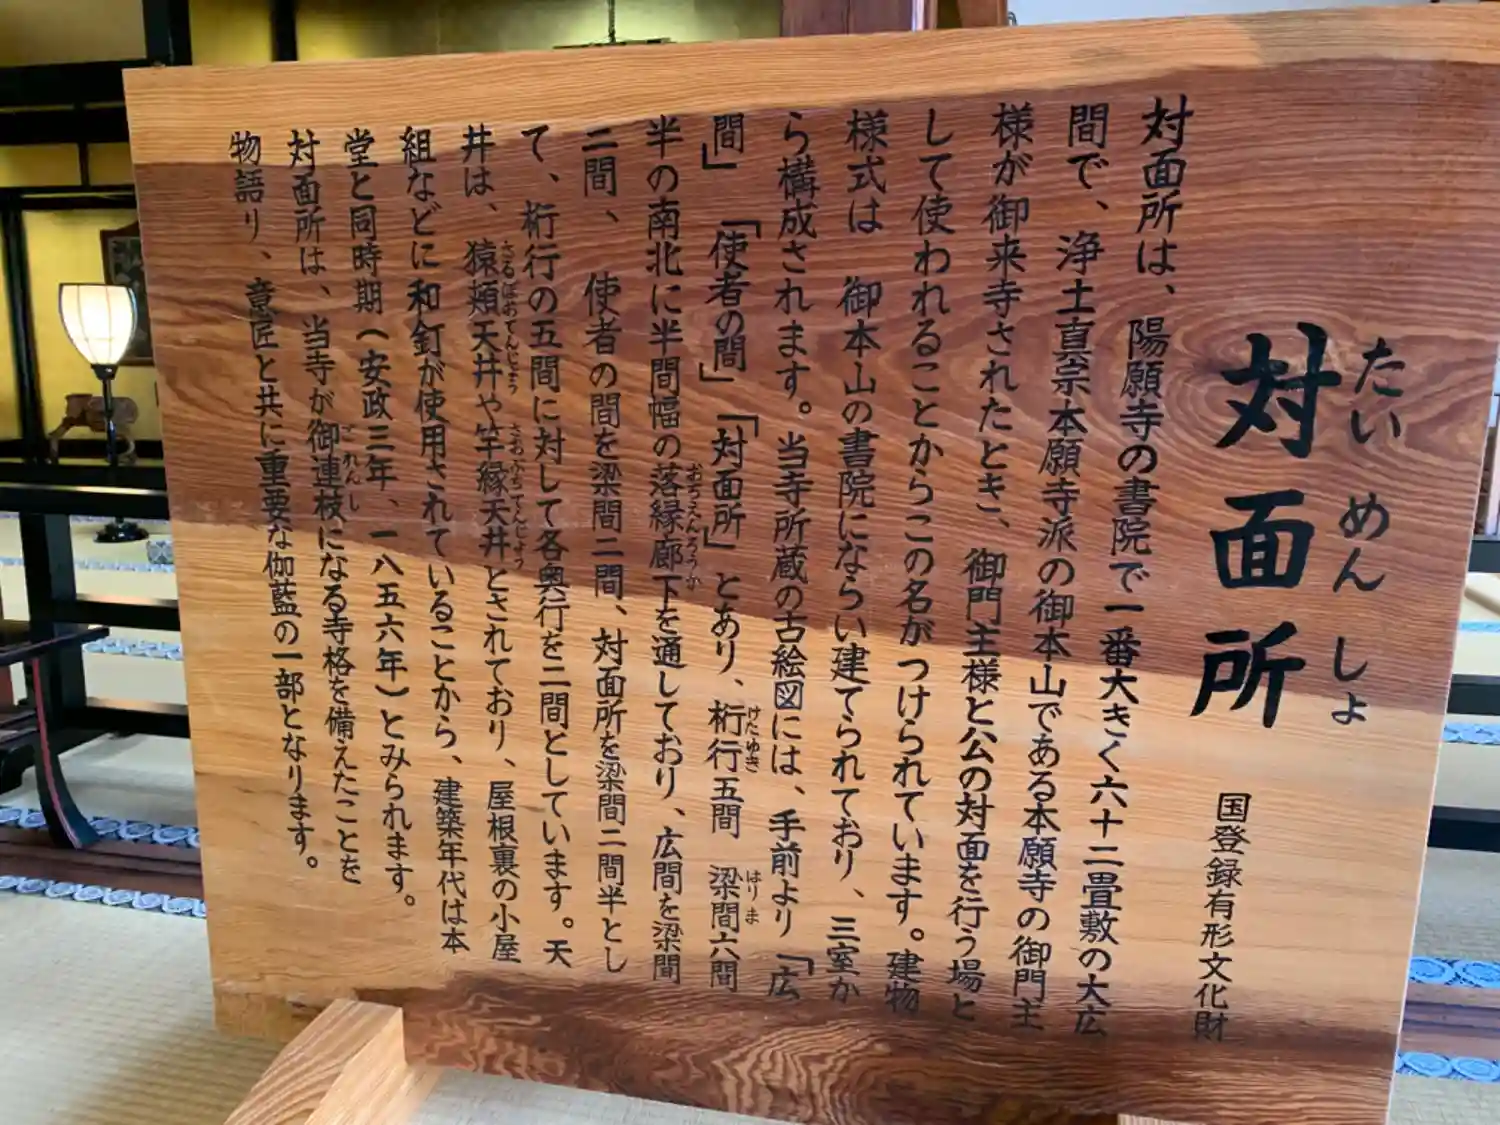 たいめんしょ
対面所
国登録有形文化財
対面所は、陽願寺の書院で一番大きく六十二畳敷の大広
間で、浄土真宗本願寺派の御本山である本願寺の御門主
様が御来寺されたとき、御門主様と公の対面を行う場と
して使われることからこの名がつけられています。建物
様式は 御本山の書院にならい建てられており、三室か
ら構成されます。当寺所蔵の古絵図には、手前より「広
間」「使者の間」「対面所」とあり、桁行五間 梁間六間
けたゆき はりま
半の南北に半間幅の落縁廊下を通しており、広間を梁間
おちえんろうか
二間、使者の間を梁間二間、対面所を梁間二間半とし
て、桁行の五間に対して各奥行を二間としています。天
井は、猿頬天井や竿縁天井とされており、屋根裏の小屋
さるぼおてんじょう さおぶちてんじょう
組などに和釘が使用されていることから、建築年代は本
堂と同時期(安政三年、一八五六年)とみられます。
対面所は、当寺が御連枝になる寺格を備えたことを
ごれんし
物語り、意匠と共に重要な伽藍の一部となります。